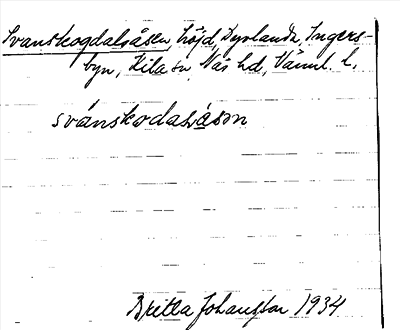 Svanskogdalsåsen, höjd, Dyrlanda, Ingers-
byn, Kila sn, Näs hd, Värml. l.
svánskꝏdalsåsən
Britta Johansson 1934